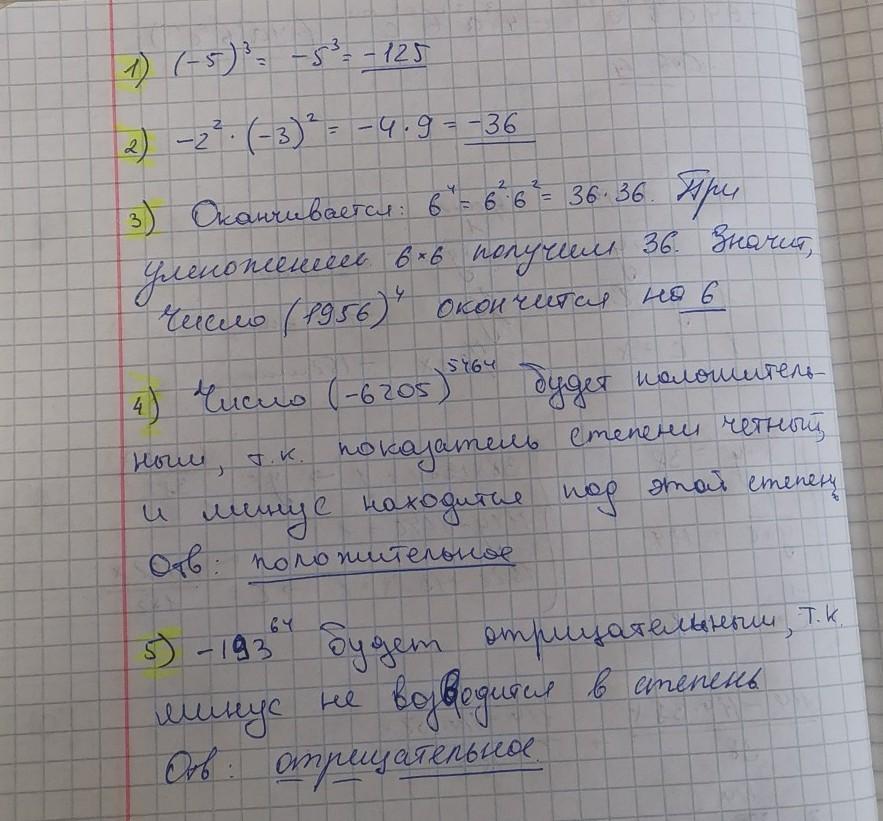 1) (-5)³ = -5³ = -125
2) -2² · (-3)² = -4 · 9 = -36
3) Оканчивается: 6⁴ = 6² · 6² = 36 · 36. При
умножении 6×6 получим 36. Значит,
число (1956)⁴ окончится на 6
4) Число (-6205)⁵⁴⁶⁴ будет положитель-
ным, т.к. показатель степени четный,
и минус находится под этой степени
Отв: положительное
5) -193⁶⁴ будет отрицательным, т.к.
минус не возводится в степень
Отв: отрицательное.